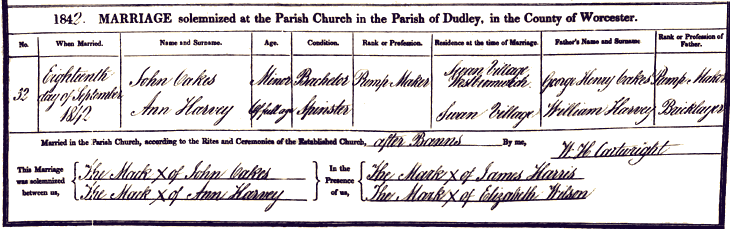 1842. MARRIAGE solemnized at the Parish Church in the Parish of Dudley, in the County of Worcester.
No. When Married. Name and Surname. Age. Condition. Rank or Profession. Residence at the time of Marriage. Father's Name and Surname Rank or Profession of Father.
32 Eighteenth day of September 1842 John Oakes Minor Bachelor Pump Maker Swan Village Westbromwich George Henry Oakes Pump Maker
Ann Harvey Of full age Spinster Swan Village William Harvey Bricklayer
Married in the Parish Church, according to the Rites and Ceremonies of the Established Church, after Banns By me,
W. H. Cartwright
This Marriage was solemnized between us, The Mark X of John Oakes
The Mark X of Ann Harvey
In the Presence of us, The Mark X of James Harris
The Mark X of Elizabeth Wilson